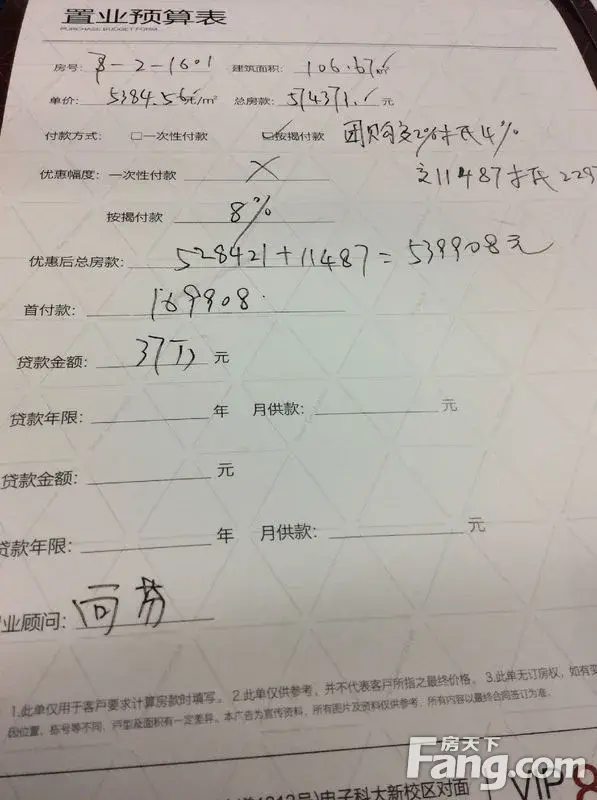 置业预算表
PURCHASE BUDGET FORM
房号: 8-2-1601 建筑面积: 106.67m²
单价: 5384.56元/m² 总房款: 574371.1元
付款方式: □一次性付款 ☑按揭付款 团购交2%才抵4%
优惠幅度: 一次性付款 X 交11487才抵2297
按揭付款 8%
优惠后总房款: 528421+11487=539908元
首付款: 169908.
贷款金额: 37万 元
贷款年限: 年 月供款: 元
贷款金额: 元
贷款年限: 年 月供款: 元
业顾问:
1.此单仅用于客户要求计算房款时填写。 2.此单仅供参考，并不代表客户所指之最终价格。 3.此单无订房权，如有变
因位置、栋号等不同，户型及面积有一定差异。本广告为宣传资料，所有图片及资料仅供参考，所有内容以最终合同签订为准。
房天下
Fang.com
号)电子科大新校区对面 VIP 8